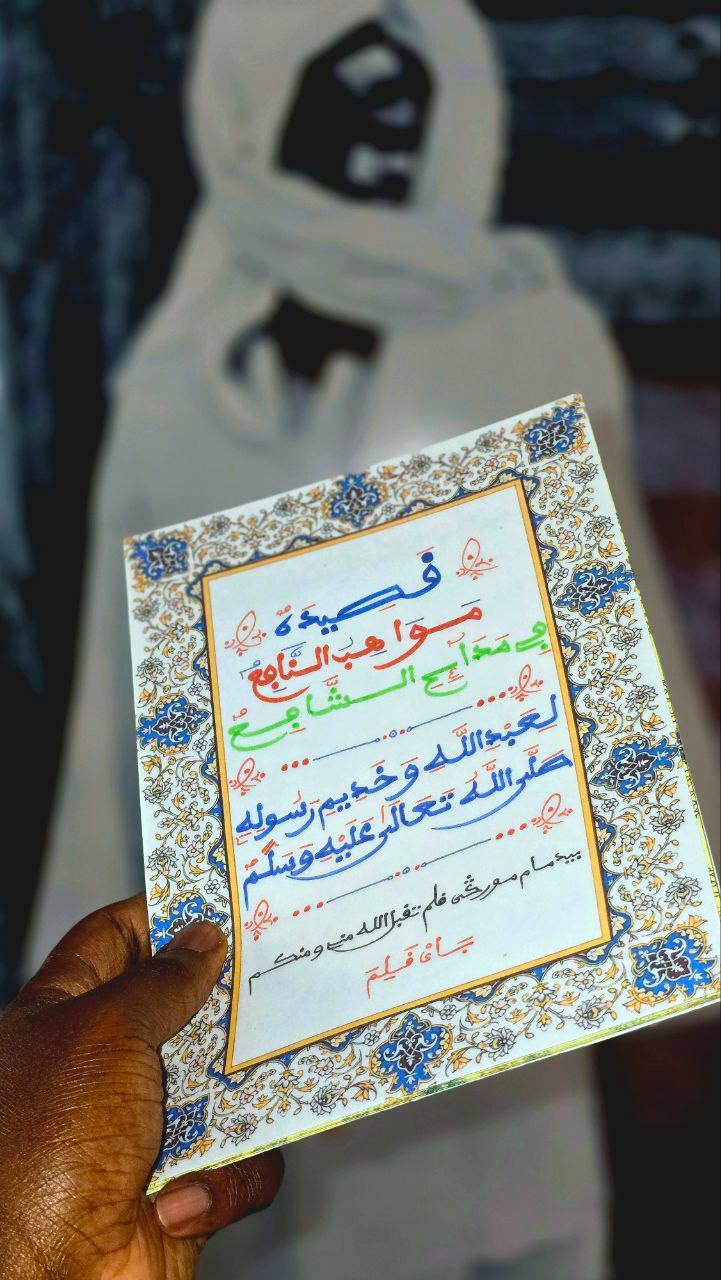 قصيدة
مواهب النَّافع
في مَدَائح الشَّافع
لعَبْد اللَّه وَخَديم رَسُوله
صَلَّى اللَّهُ تعَالَى عَلَيْه وَسَلَّم
بيد مام مور
قلم تقبل الله منا ومنكم